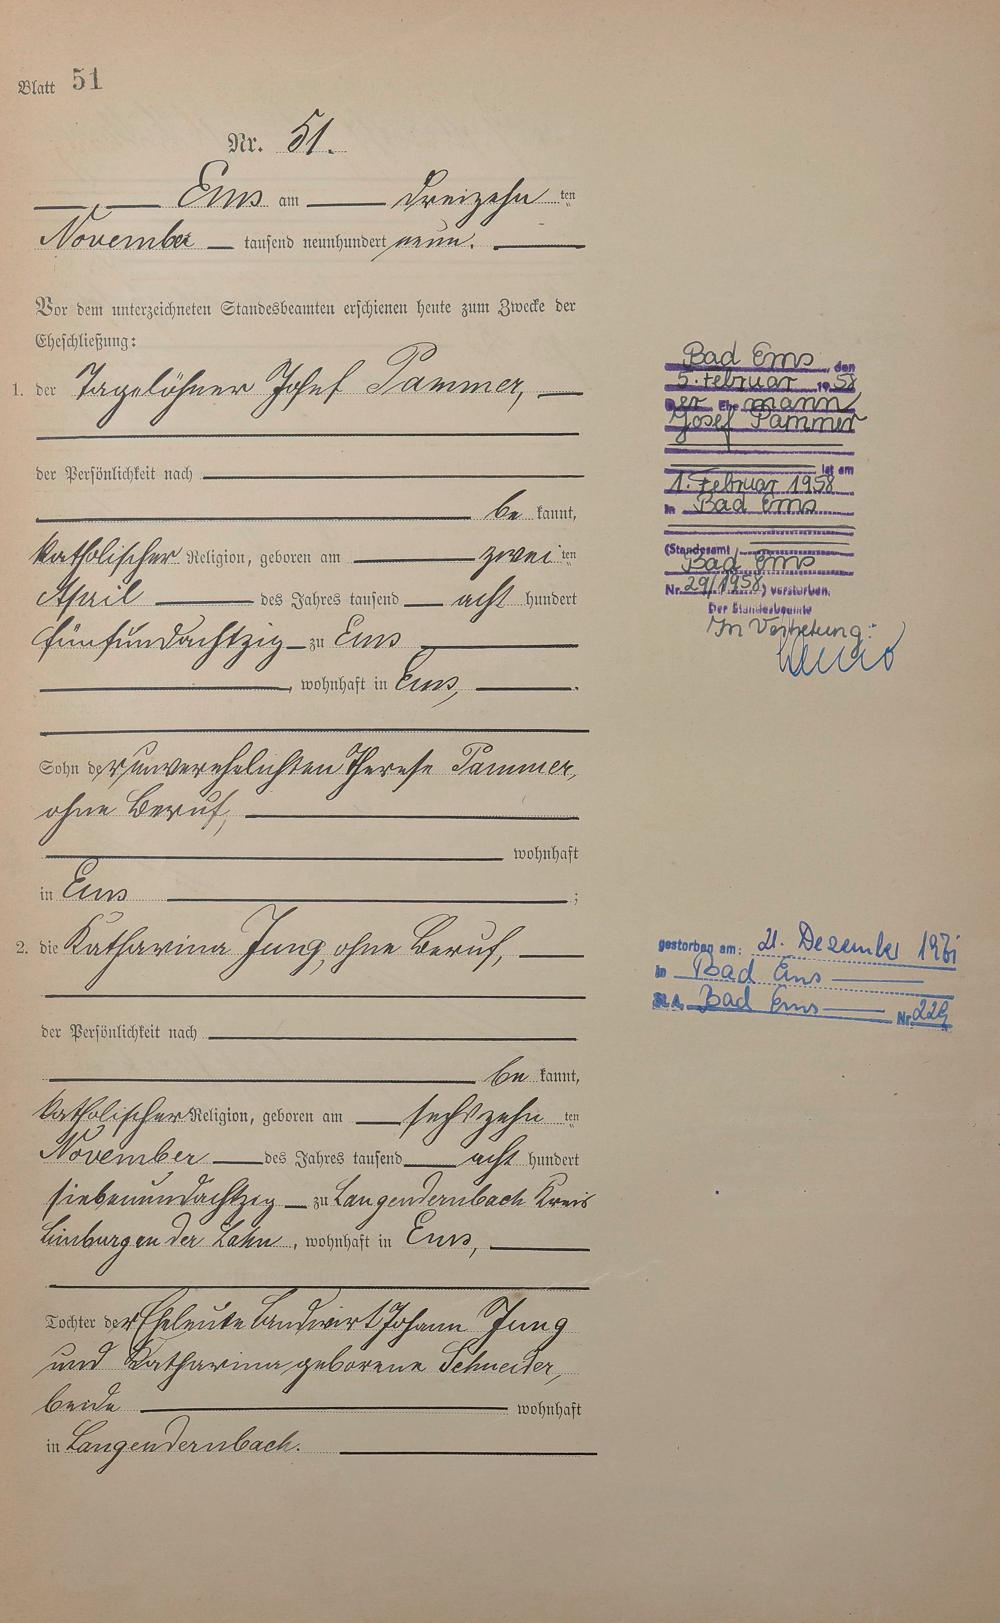 Blatt 51
Nr. 51.
Ems am Dreizehn ten
November tausend neunhundert neun.
Vor dem unterzeichneten Standesbeamten erschienen heute zum Zwecke der
Eheschließung:
1. der Tagelöhner Josef Pammer,
der Persönlichkeit nach
be kannt,
katholischer Religion, geboren am zwei ten
April des Jahres tausend acht hundert
fünfundachtzig zu Ems
, wohnhaft in Ems,
Sohn der unverehelichten Therese Pammer,
ohne Beruf,
wohnhaft
in Ems ;
2. die Katharina Jung, ohne Beruf,
der Persönlichkeit nach
be kannt,
katholischer Religion, geboren am sechszehn ten
November des Jahres tausend acht hundert
siebenundachtzig zu Langendernbach Kreis
Limburg an der Lahn, wohnhaft in Ems,
Tochter der Eheleute Landwirt Johann Jung
und Katharina geborene Schneider,
beide wohnhaft
in Langendernbach.
Bad Ems, den
5. Februar 1958
Der Ehemann
Josef Pammer
ist am
1. Februar 1958
in Bad Ems
(Standesamt
Bad Ems
Nr. 29/1958) verstorben.
Der Standesbeamte
In Vertretung:
gestorben am: 21. Dezember
in Bad Ems
St. A. Bad Ems Nr.